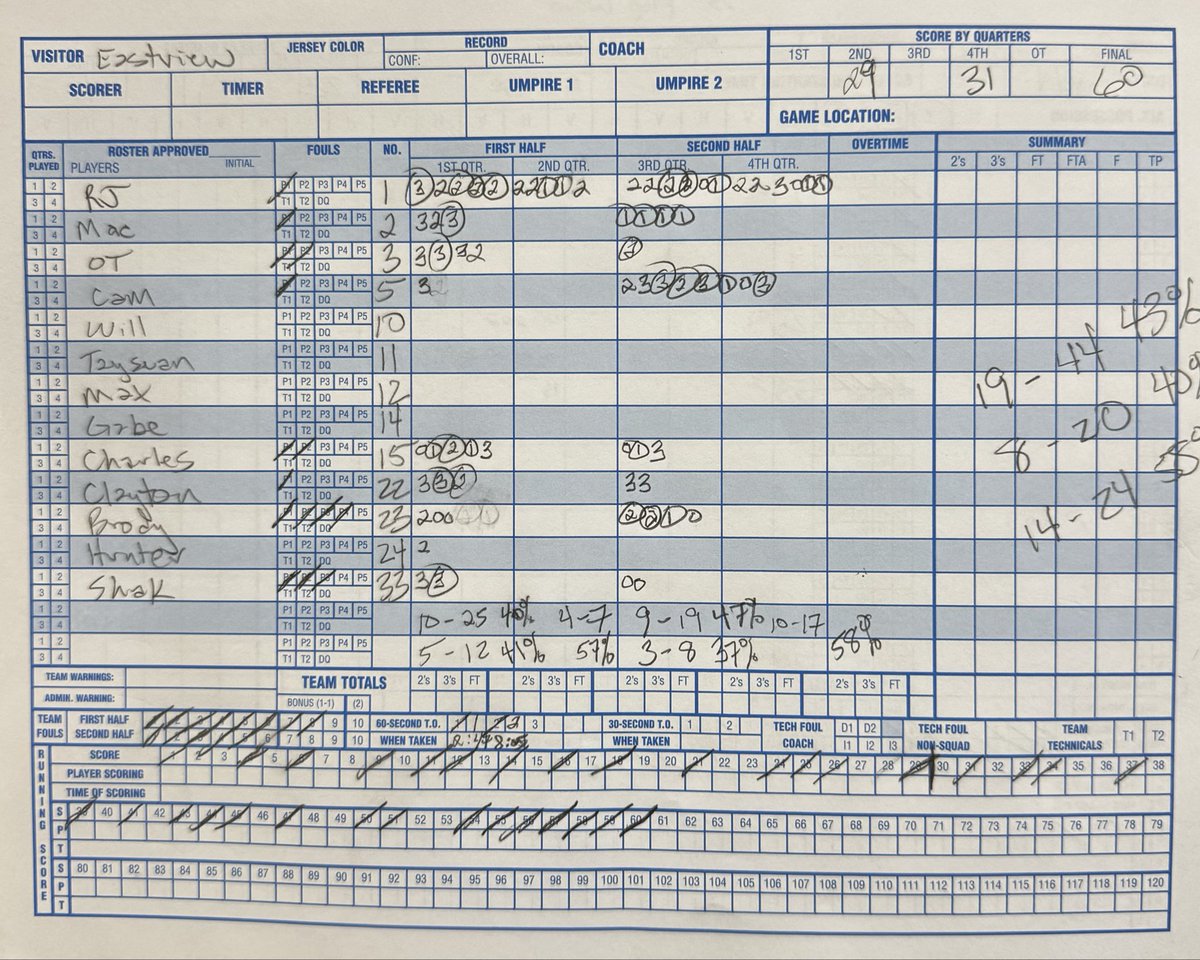 VISITOR Eastview JERSEY COLOR RECORD COACH SCORE BY QUARTERS
CONF: OVERALL: 1ST 2ND 3RD 4TH OT FINAL
29 31 60
SCORER TIMER REFEREE UMPIRE 1 UMPIRE 2
GAME LOCATION:
QTRS. PLAYED ROSTER APPROVED INITIAL FOULS NO. FIRST HALF SECOND HALF OVERTIME SUMMARY
PLAYERS 1ST QTR. 2ND QTR. 3RD QTR. 4TH QTR. 2's 3's FT FTA F TP
1 2 3 4 RJ P1 P2 P3 P4 P5 T1 T2 DQ 1
1 2 3 4 Mac P1 P2 P3 P4 P5 T1 T2 DQ 2 3 2 3 1 1 1 1
1 2 3 4 OT P1 P2 P3 P4 P5 T1 T2 DQ 3 3 3 3 2 2
1 2 3 4 Cam P1 P2 P3 P4 P5 T1 T2 DQ 5
1 2 3 4 Will P1 P2 P3 P4 P5 T1 T2 DQ 10
1 2 3 4 Tayswan P1 P2 P3 P4 P5 T1 T2 DQ 11
1 2 3 4 Max P1 P2 P3 P4 P5 T1 T2 DQ 12
1 2 3 4 Gabe P1 P2 P3 P4 P5 T1 T2 DQ 14
1 2 3 4 Charles P1 P2 P3 P4 P5 T1 T2 DQ 15 0 1 2 1 3 0 1 3
1 2 3 4 Clayton P1 P2 P3 P4 P5 T1 T2 DQ 22 3 3 2 3 3
1 2 3 4 Brody P1 P2 P3 P4 P5 T1 T2 DQ 23 2 0 0 2 2 1 0
1 2 3 4 Hunter P1 P2 P3 P4 P5 T1 T2 DQ 24 2
1 2 3 4 Shak P1 P2 P3 P4 P5 T1 T2 DQ 33 3 3 0 0
1 2 3 4 P1 P2 P3 P4 P5 T1 T2 DQ 10-25 40% 4-7 9-19 47% 10-17
1 2 3 4 P1 P2 P3 P4 P5 T1 T2 DQ 5-12 41% 57% 3-8 37% 58%
19-44 43%
8-20 40%
14-24
TEAM WARNINGS: TEAM TOTALS 2's 3's FT 2's 3's FT 2's 3's FT 2's 3's FT 2's 3's FT
ADMIN. WARNING: BONUS (1-1) (2)
TEAM FOULS FIRST HALF 1 2 3 4 5 6 7 8 9 10 60-SECOND T.O. 1 2 3 30-SECOND T.O. 1 2 TECH FOUL COACH D1 D2 TECH FOUL NON-SQUAD TEAM TECHNICALS T1 T2
SECOND HALF 1 2 3 4 5 6 7 8 9 10 WHEN TAKEN 2:47 8:05 WHEN TAKEN I1 I2 I3
RUNNING SCORE
SCORE 1 2 3 4 5 6 7 8 9 10 11 12 13 14 15 16 17 18 19 20 21 22 23 24 25 26 27 28 29 30 31 32 33 34 35 36 37 38
PLAYER SCORING
TIME OF SCORING
S 39 40 41 42 43 44 45 46 47 48 49 50 51 52 53 54 55 56 57 58 59 60 61 62 63 64 65 66 67 68 69 70 71 72 73 74 75 76 77 78 79
P
T
S 80 81 82 83 84 85 86 87 88 89 90 91 92 93 94 95 96 97 98 99 100 101 102 103 104 105 106 107 108 109 110 111 112 113 114 115 116 117 118 119 120
P
T